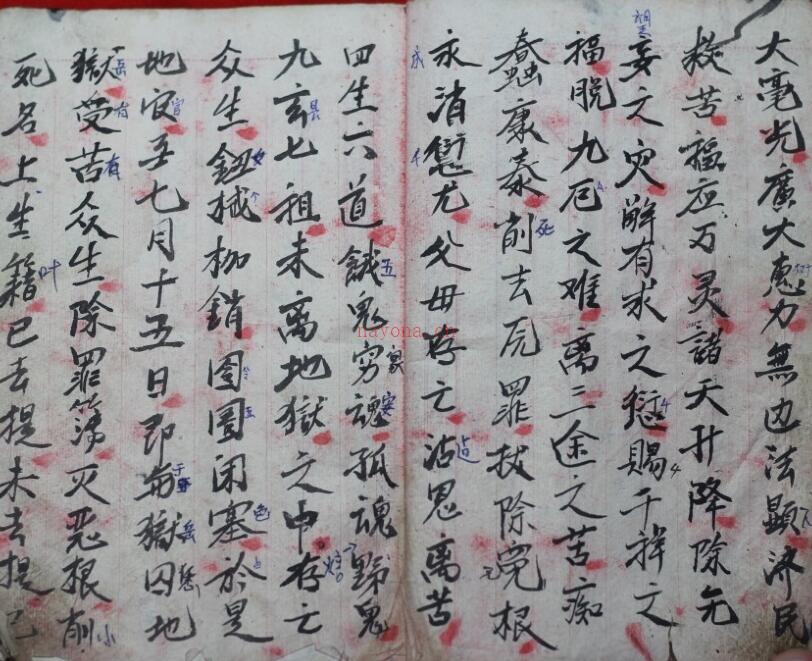 大毫光廣大惠力無边法顯济民
救苦福应万灵諸天升降除无
妄之灾解有求之愆赐千祥之
福脱九厄之难离三途之苦痴
蠢康泰削去死罪拔除冤根
永消愆尤父母存亡沾恩离苦
四生六道餓鬼穷魂孤魂野鬼
九玄七祖未离地獄之中存亡
众生鈕械枷銷囹圄闭塞於是
地官于七月十五日即海獄囚地
獄受苦众生除罪簿灭恶根削
死名上生籍已去提未去提已
nayona.cn